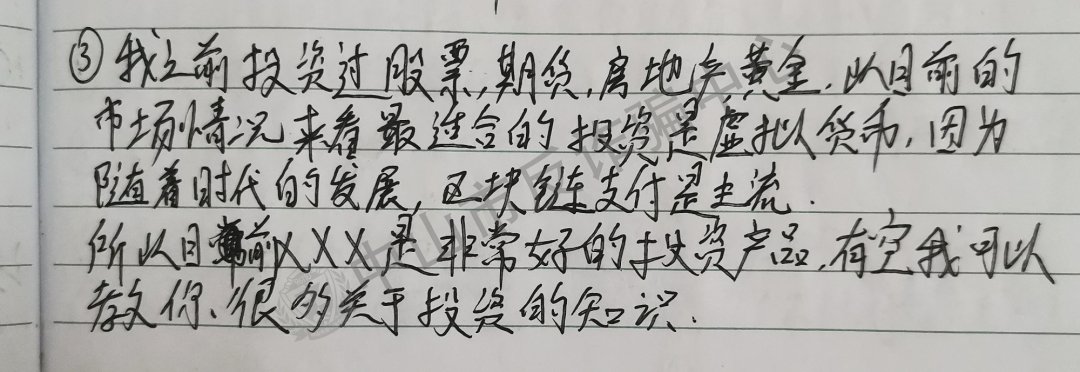 ③我之前投资过股票,期货,房地产,黄金.以目前的
市场情况来看最适合的投资是虚拟货币,因为
随着时代的发展,区块链支付是主流.
所以目前XXX是非常好的投资产品,有空我可以
教你、很多关于投资的知识.
中山市反诈骗中心